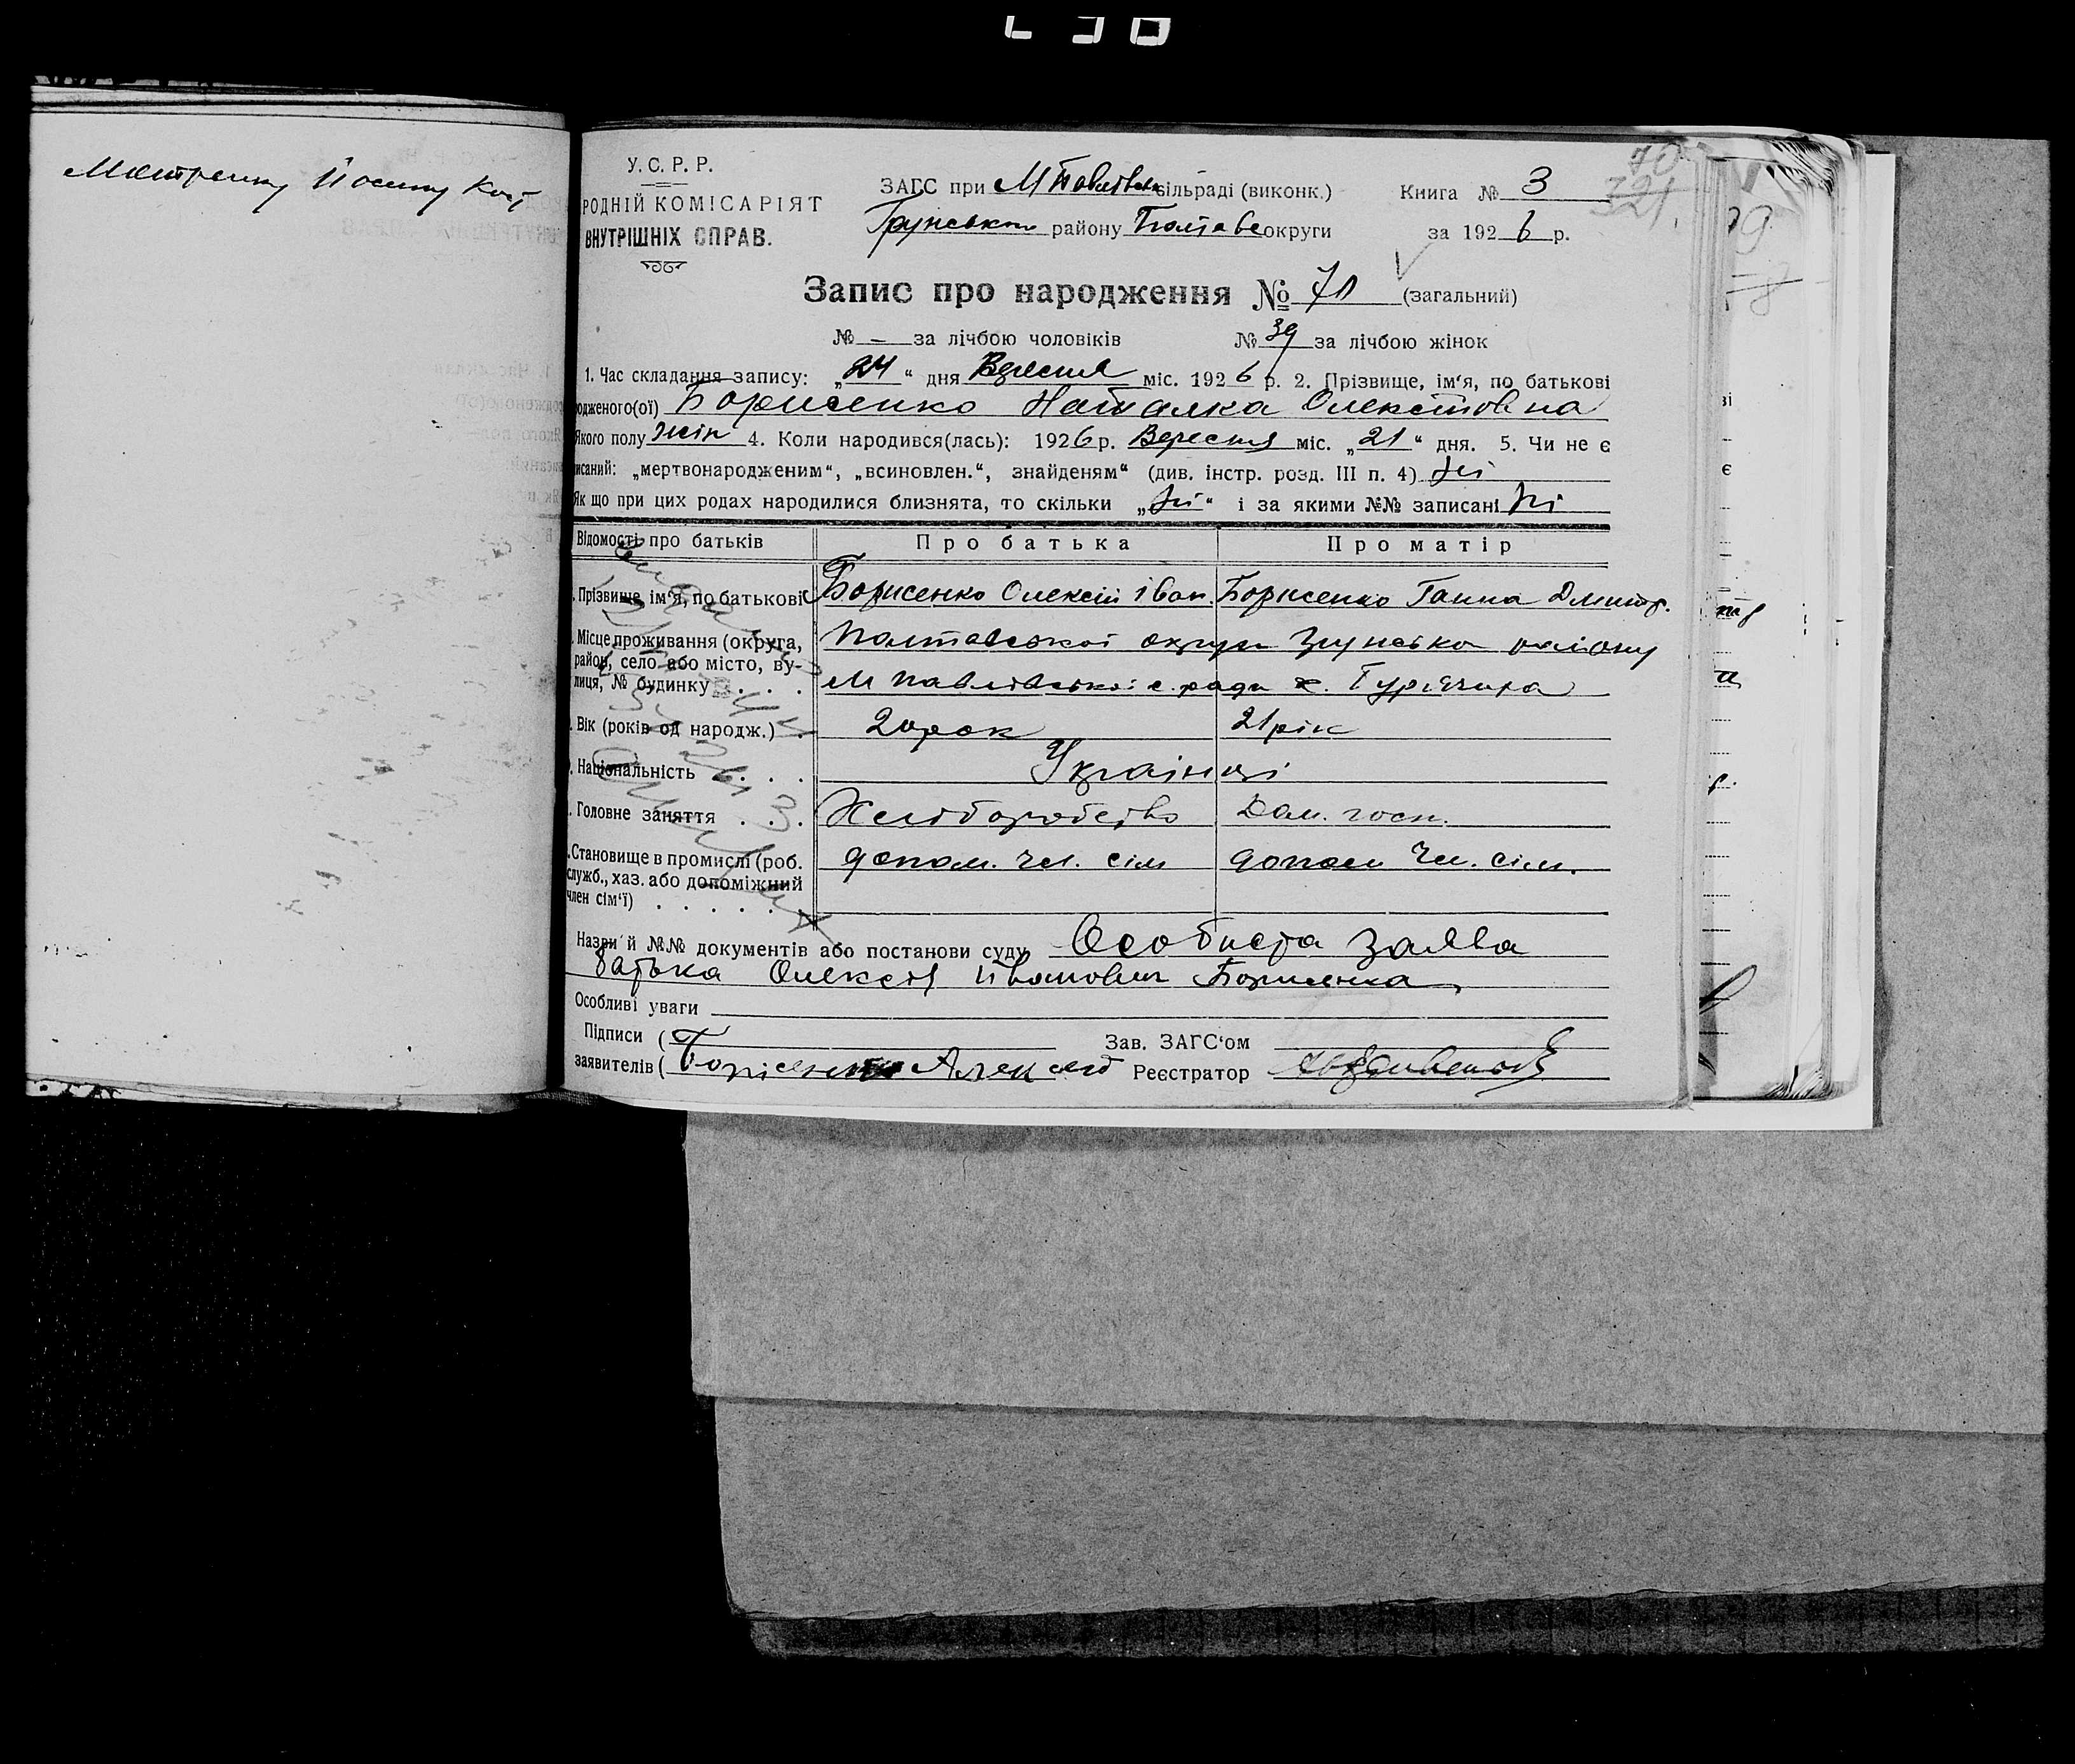 У. С. Р. Р.
РОДНІЙ КОМІСАРІЯТ
ВНУТРІШНІХ СПРАВ.
ЗАГС при М Павлівськ сільраді (виконк.)
Грунського району Полтавс округи
Книга № 3
за 1926 р.
70
321
Запис про народження № 71 (загальний)
№ – за лічбою чоловіків № 39 за лічбою жінок
1. Час складання запису: „24“ дня Вересня міс. 1926 р. 2. Прізвище, ім‘я, по батькові
одженого(ої) Борисенко Наталка Олексіовна
Якого полу жін 4. Коли народився(лась): 1926 р. Вересня міс. „21“ дня. 5. Чи не є
исаний: „мертвонародженим“, „всиновлен.“, знайденям“ (див. інстр. розд. III п. 4) ні
Як що при цих родах народилися близнята, то скільки „ні“ і за якими №№ записані ні
Відомості про батьків Про батька Про матір
Прізвище, ім‘я, по батькові Борисенко Олексій Іван. Борисенко Ганна Дмитр.
Місце проживання (округа, район, село або місто, вулиця, № будинку . . . Полтавської округи Грунсько району
М Павлівської с. ради х. Гурячина
Вік (років од народж.) . 20 рок 21 рік
Національність . . . Українці
Головне заняття . . . Хліборобство Дом. госп.
Становище в промислі (роб.
служб., хаз. або допоміжний
член сім‘ї) . . . . . допом. чл. сім допом чл. сім.
Назви й №№ документів або постанови суду Особиста заява
батька Олексія Івановича Борисенка
Особливі уваги
Підписи ( Зав. ЗАГС‘ом
заявителів ( Борісенко Алексей Реєстратор